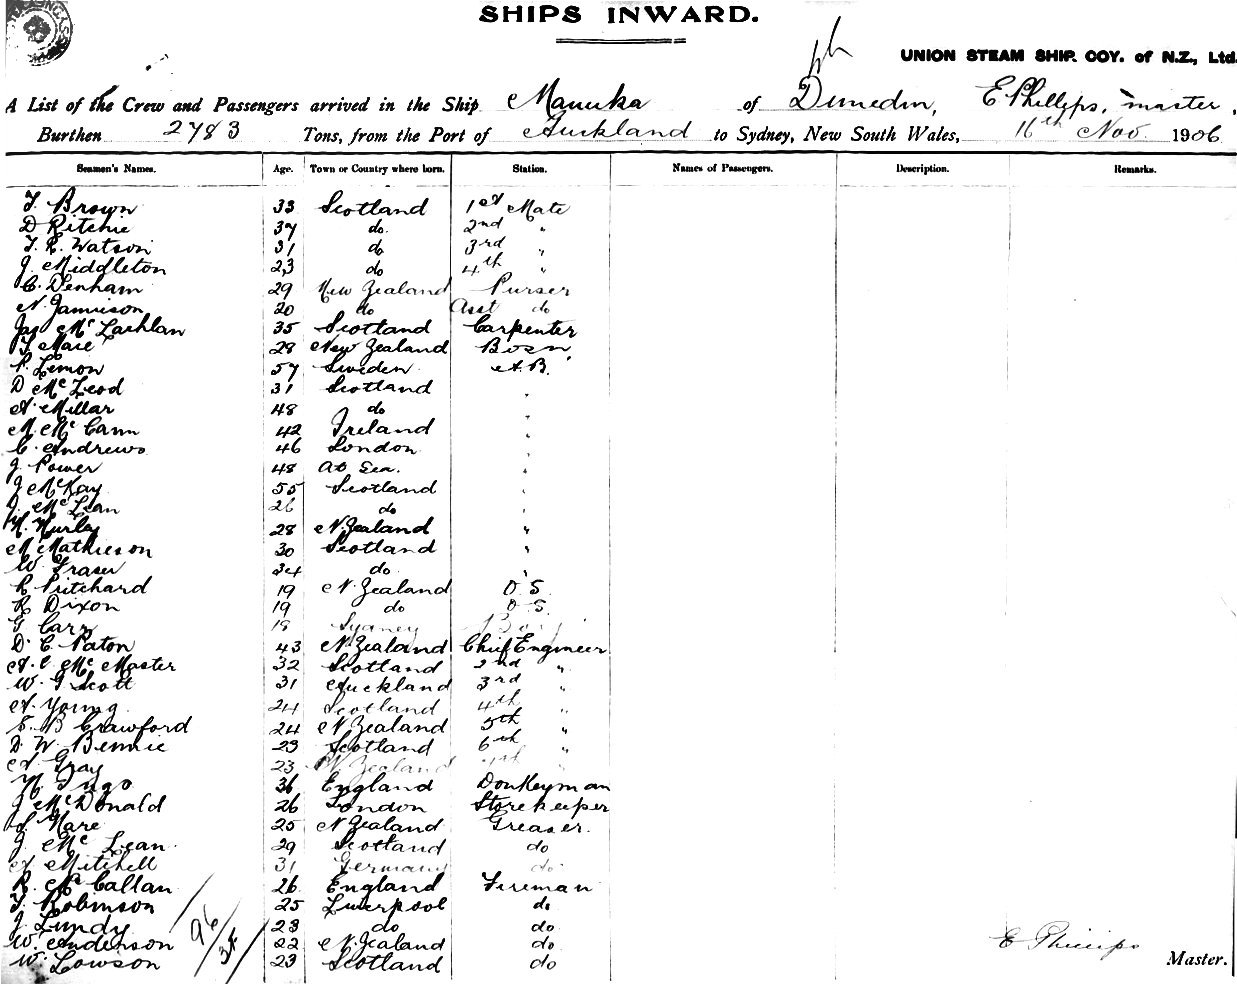 SHIPS INWARD.
UNION STEAM SHIP. COY. of N.Z., Ltd.
A List of the Crew and Passengers arrived in the Ship Manuka of Dunedin, E Phillips, master,
Burthen 2783 Tons, from the Port of Auckland to Sydney, New South Wales, 16th Nov. 1906
Seamen's Names. Age. Town or Country where born. Station. Names of Passengers. Description. Remarks.
T. Brown 33 Scotland 1st Mate
D Ritchie 37 do. 2nd "
T. R. Watson 31 do 3rd "
J. Middleton 23 do 4th "
C. Denham 29 New Zealand Purser
N. Jamieson 20 do Asst do
Jas McLachlan 35 Scotland Carpenter
28 New Zealand Bosn
P. Lemon 57 Sweden A.B.
D McLeod 31 Scotland "
A. Millar 48 do "
M. McCann 42 Ireland "
C. Andrews 46 London "
J. Power 48 At Sea. "
J McKay 55 Scotland "
McLean 26 do "
Hurley 28 N.Zealand "
M Mathieson 30 Scotland "
W. Fraser 34 do "
R Pritchard 19 N. Zealand O S.
R Dixon 19 do O S.
G Carr 18 Sydney Boy
D. C. Paton 43 N. Zealand Chief Engineer
A. C. McMaster 32 Scotland 2nd "
W. G Scott 31 Auckland 3rd "
A. Young 24 Scotland 4th "
S. B Crawford 24 N Zealand 5th "
D. W. Bennie 23 Scotland 6th "
A Gray 23 N Zealand
36 England Donkeyman
J McDonald 26 London Storekeeper
25 N Zealand Greaser.
J. McLean 29 Scotland do
A Mitchell 31 Germany do
R. McCallan 26 England Fireman
T. Robinson 25 Liverpool do
J Lundy 23 do do
W. Anderson 22 N. Zealand do
W. Lowson 23 Scotland do
E Phillips
Master.